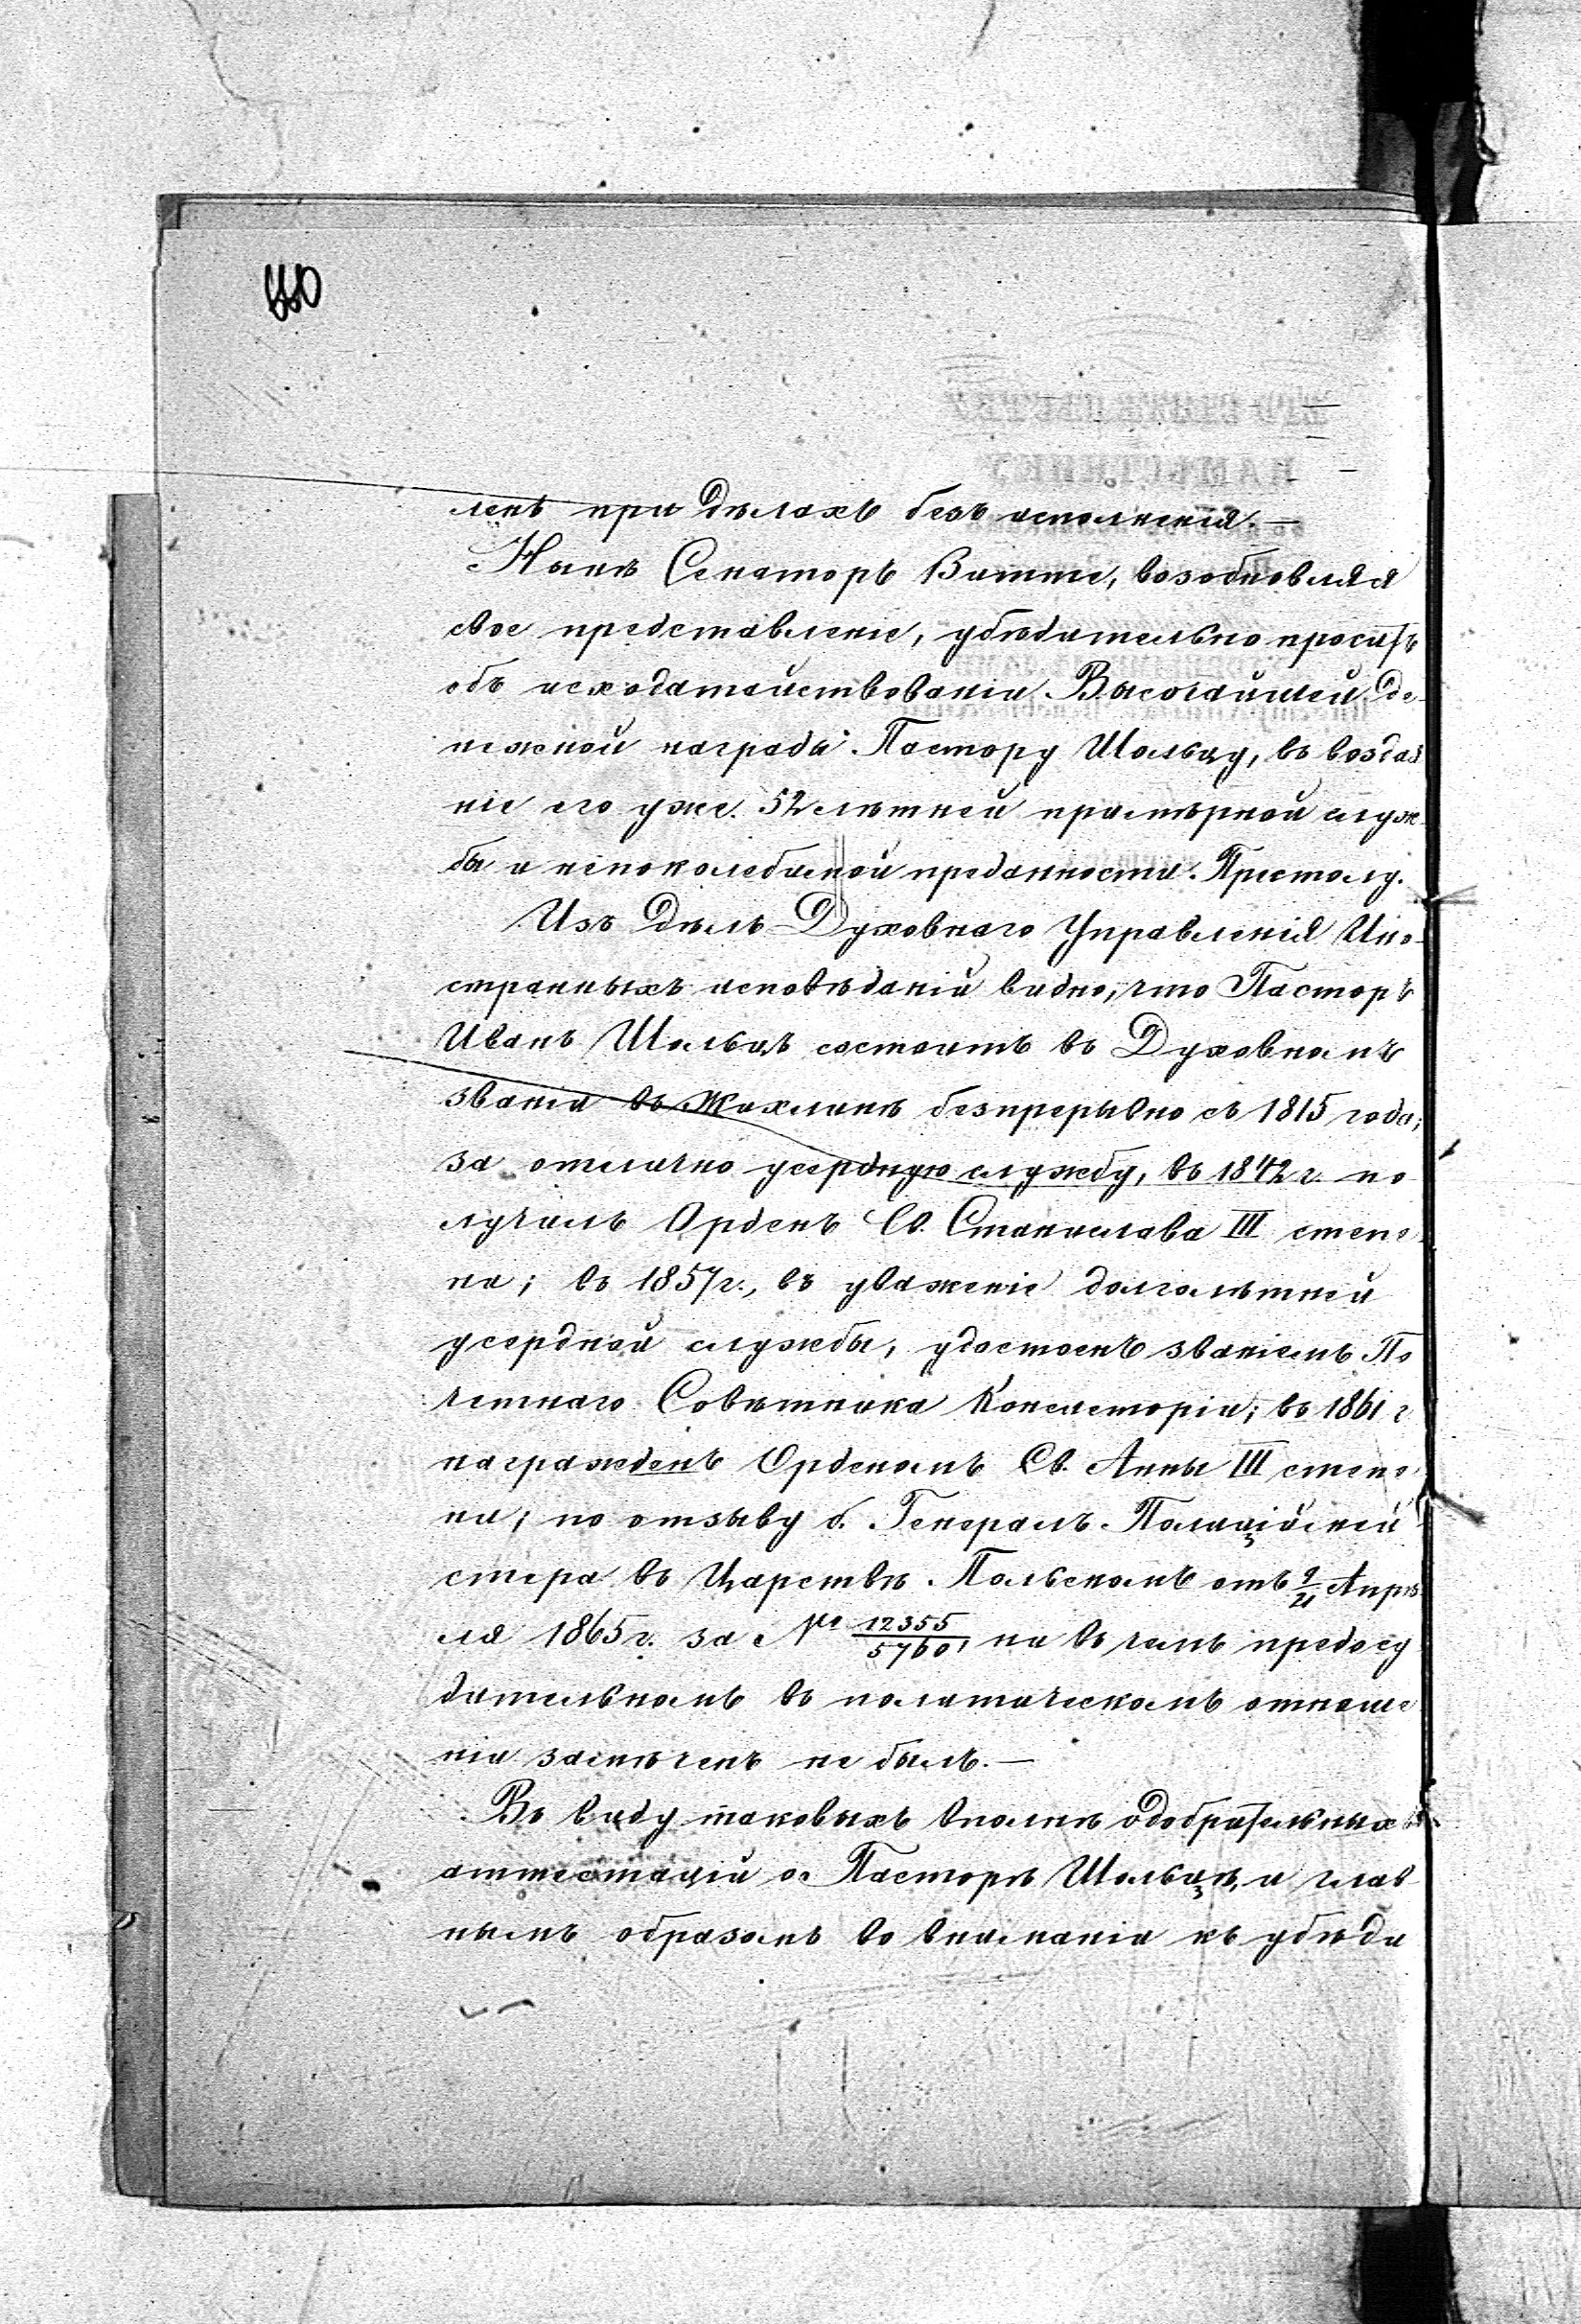 ленъ при дѣлахъ безъ исполненія.—
Нынѣ Сенаторъ Витте, возобновляя
свое представленіе, убѣдительно проситъ
объ исходатайствованіи Высочайшей де-
нежной награды Пастору Шольцу, въ воздая
ніе его уже 52 лѣтней примѣрной служ-
бы и непоколебимой преданности Престолу.
Изъ дѣлъ Духовнаго Управленія Ино-
странныхъ исповѣданій видно, что Пасторъ
Иванъ Шольцъ состоитъ въ Духовномъ
званіи въ безпрерывно съ 1815 года;
за отлично усердную службу, въ 1842 г. по
лучилъ Орденъ Св. Станислава III степе-
ни; въ 1857 г., въ уваженіе долголѣтней
усердной службы, удостоенъ званіемъ По
четнаго Совѣтника Консисторіи; въ 1861 г
награжденъ Орденомъ Св. Анны III степе-
ни; по отзыву б. Генералъ-Полиційсмей
стера въ Царствѣ Польскомъ отъ 9/21 Апрѣ
ля 1865 г. за № 12355/5760, ни въ чемъ предосу
дительномъ въ политическомъ отноше
ніи замѣченъ не былъ.—
Въ виду таковыхъ вполнѣ одобрительныхъ
аттестацій о Пасторѣ Шольцѣ, и глав
нымъ образомъ во вниманіи къ убѣди